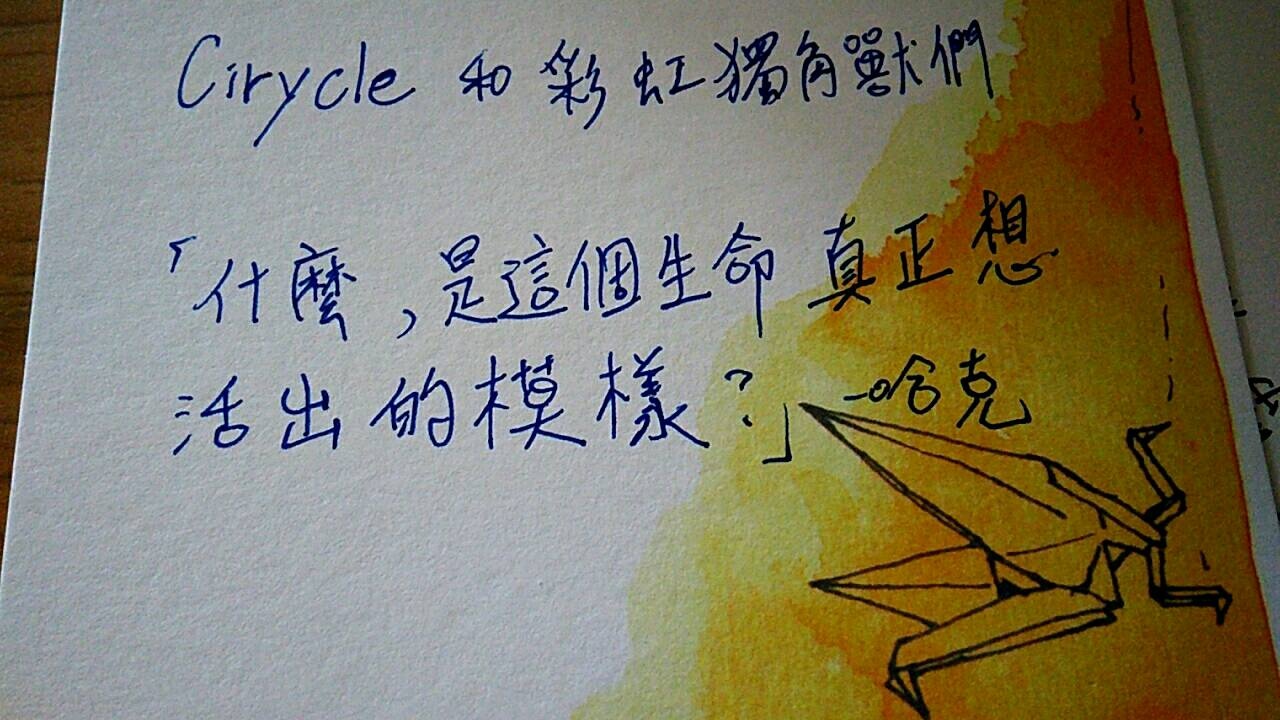 Cirycle 和彩虹獨角獸們
「什麼,是這個生命真正想
活出的模樣?」—哈克